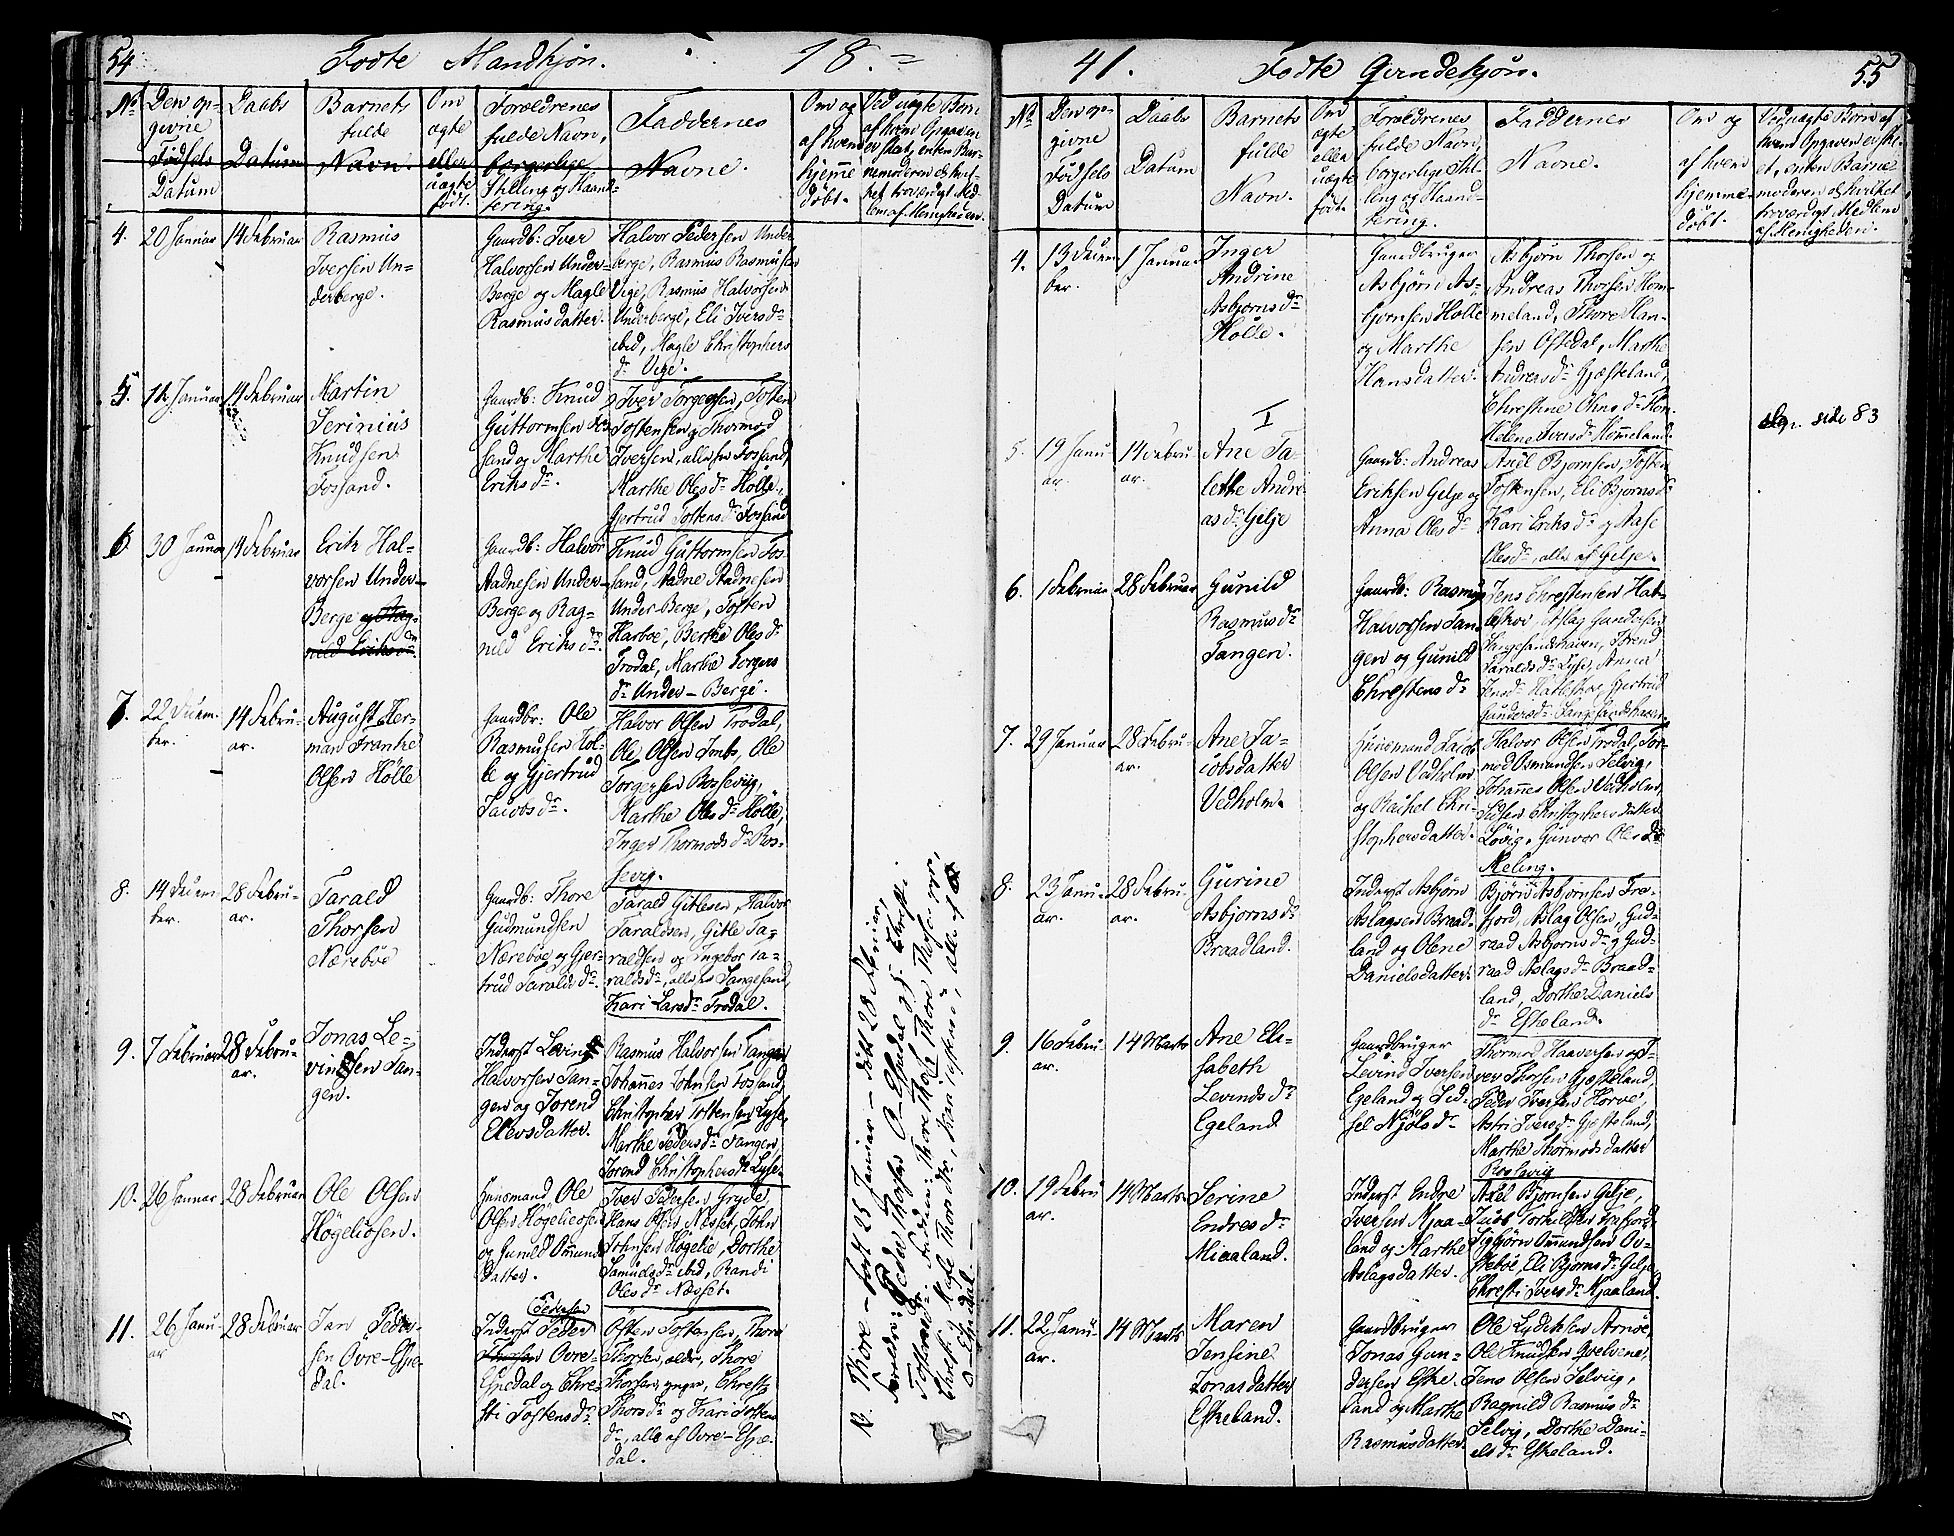 54
Fødte Mandkjøn.
18.=
No.
Den op-
givne
Fødsels
Datum
Daabs
Datum
Barnets
fulde
Navn.
Om
ægte
eller
uægte
født.
Forældrenes
fulde Navn,
borgerlige
Stilling og Haand-
tering.
Faddernes
Navne.
Om og
af hvem
hjemme
døbt.
Ved uægte Børn
af hvem Opgaven
er skeet, enten Bar-
nemoderen eller hvil-
ket troværdigt Med-
lem af Menigheden.
4.
20 Januar
14 Februar
Rasmus
Iversen Un-
derberge.
Gaardb: Iver
Halvorsen Under-
Berge og Magle
Rasmusdatter.
Halvor Pedersen Under
berge, Rasmus Rasmusen
Vige, Rasmus Halvorsen
Underberge, Eli Iversdr
ibid, Magle Christophers
dr Vige.
5.
14 Februar
Martin
Serinius
Knudsen
Fossand.
Gaardb: Knud
Guttormsen Fos-
sand og Marthe
Eriksdr.
Iver Torgersen, Tosten
Tostensen, Thormod
Iversen, alle fra Fossand,
Marthe Olesdr Hölle,
Gjertrud Tostensdr Fossand
6.
30 Januar
14 Februar
Erik Hal-
vorsen Under-
Berge og Rag-
nild Eriksdr.
Gaardb: Halvor
Aadnesen Under-
Berge og Rag-
nild Eriksdr.
Knud Guttormsen Fos-
sand, Aadne Aadnesen
Under-Berge, Tosten
Harboe, Berthe Olesdr
Trodal, Marthe Torgers
dr Under-Berge.
7.
22 Decem-
ber.
14 Febru-
ar.
August Her-
man Franke
Olsen Hölle
Gaardbr: Ole
Rasmusen Höl-
le og Gjertrud
Jacobsdr.
Halvor Olsen Trodal,
Ole Olsen, Ole
Torgersen Rossevig,
Marthe Olesdr Hölle,
Inger Thormodsdr Ros-
sevig.
8.
14 Decem
ber.
28 Febru-
ar.
Tarald
Thorsen
Næreböe
Gaardb: Thore
Gudmundsen
Næreböe og Gjer-
trud Taraldsdr.
Tarald Gitlesen, Halvor
Taraldsen, Gitle Ta-
raldsen og Ingebor Ta-
raldsdr, alle fra Sangesand,
Kari Larsdr Trodal.
9.
7 Februar
28 Febru-
ar.
Jonas Le-
vindsen Tan-
gen.
Inderst Levind
Halvorsen Tan-
gen og Jorend
Elevsdatter.
Rasmus Halvorsen Tangen
Johannes Johnsen Fossand,
Christopher Tostensen Lyse,
Marthe Pedersdr Tangen
Jorend Christophersdr Lyse.
10.
26 Januar
28 Februar
Ole Olsen
Högelieosen.
Huusmand Ole
Olsen Högelieosen
og Gunild Ommunds
datter.
Iver Pedersen Gryde,
Hans Olsen Næsset, John
Johnsen Högelie, Dorthe
Samuelsdr ibid, Randi
Olesdr Næsset.
11.
26 Janu-
ar
28 Februar
Jan Peder-
sen Övre-Espe-
dal.
Pedersen
Inderst Peder
Thorsen Övre-
Espedal og Chre-
sti Tostensdr.
Östen Tostensen, Thore
Thorsen, ældr, Thore
Thorsen, yngr, Chresti
Thorsdr og Kari Tostens
dr, alle af Övre-Espe-
dal.
12. Thore - født 25 Januar - døbt 28 Februar,
Forældre: Peder Thorsen O-Espedal og Chresti
Tostensdr. Faddere: Thore Thore Thorsen yngr,
O-Espedal.
41.
Fødte Qvindekjøn.
55
No.
Den op-
givne
Fødsels
Datum
Daabs
Datum
Barnets
fulde
Navn.
Om
ægte
eller
uægte
født.
Forældrenes
fulde Navn,
borgerlige Stil-
ling og Haand-
tering.
Faddernes
Navne.
Om og
af hvem
hjemme
døbt.
Ved uægte Børn af
hvem Opgaven er ske-
et, enten Barne-
moderen el. hvilket
troværdigt Medlem
af Menigheden.
4.
13 Decem
ber.
1 Januar
Inger
Andrine
Asbjørnsdr
Hölle.
Gaardbruger
Asbjörn As-
bjørnsen Hölle
og Marthe
Hansdatter.
Asbjörn Thorsen og
Andreas Thorsen Hom-
meland, Thore Han-
sen Oftedal, Marthe
Andreasdr Gjesteland,
Helene Iversdr Hommeland.
side 83
I
5.
19 Janu
ar.
14 Febru-
ar.
Ane Ta-
lette Andre
asdr Gelje
Gaardb: Andreas
Eriksen Gelje og
Anna Olesdr
Axel Bjørnsen, Tosten
Tostensen, Eli Bjørnsdr
Kari Eriksdr og Aase
Olesdr, alle af Gelje.
6.
1 Februar
28 Februar
Gunild
Rasmusdr
Tangen.
Gaardb: Rasmus
Halvorsen Tan-
gen og Gunild
Chrestensdr
Jens Chrestensen Hat-
leskov, Aslag Gundersen
Sangesandshaven, Jorend
Taraldsdr Lyse, Anna
Jensdr Hatleskov, Gjertrud
Gundersdr Sangesandshaven
7.
29 Januar
28 Febru-
ar.
Ane Ja-
cobsdatter
Vedholm.
Huusmand Jacob
Olsen Vedholm
og Rachel Chri-
stophersdatter.
Halvor Olsen Trodal, Tor-
mod Asmundsen Selvig,
Johannes Olsen Vedholm,
Christophersdatter
Lövig, Gunvor Olesdr
Meling.
8.
23 Janu-
ar.
28 Febru-
ar.
Gurine
Asbjørnsdr
Braadland.
Inderst Asbjörn
Aslagsen Braad-
land og Olene
Danielsdatter.
Björn Asbjørnsen Fra-
fjord, Aslag Olsen, Gud-
raad Asbjørnsdr og Gud-
raad Aslagsdr Braad-
land, Dorthe Daniels
dr Eskeland.
9.
16 Febru-
ar.
14 Marts
Ane Eli-
sabeth
Levindsdr
Egeland
Gaardbruger
Levind Iversen
Egeland og Sid-
sel Njölsdr
Thormod Haaversen og I-
ver Thorsen Gjesteland,
Peder Iversen Horve,
Astri Iversdr Gjesteland,
Marthe Thormodsdatter
Roslavig
10.
19 Febru
ar.
14 Marts
Serine
Endresdr
Miaaland.
Inderst Endre
Iversen Mjaa-
land og Marthe
Aslagsdatter.
Axel Bjørnsen Gelje,
Jacob Torkildsen Fosfjord
Sigbjörn Ommundsen Öv-
steböe, Eli Bjørnsdr Gelje
Chresti Iversdr Mjaaland.
11.
22 Janu-
ar.
14 Marts
Maren
Jensine
Jonasdatter
Eskeland.
Gaardbruger
Jonas Gun-
dersen Eske-
land og Marthe
Rasmusdatter.
Ole Lydiksen Arnöe,
Ole Knudsen Qvelvene,
Jens Olsen Selvig,
Ragnild Rasmusdr
Selvig, Dorthe Dani-
elsdr Eskeland.